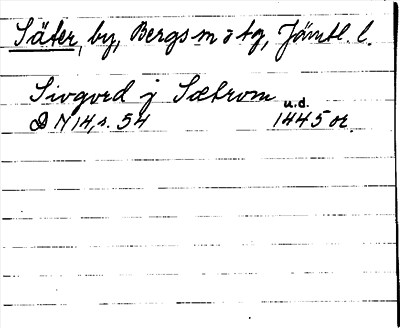 Säter, by, Bergs sn o tg, Jämtl. l.
Sivgord j Sætrom u.d.
D N 14, s. 54 1445 or.